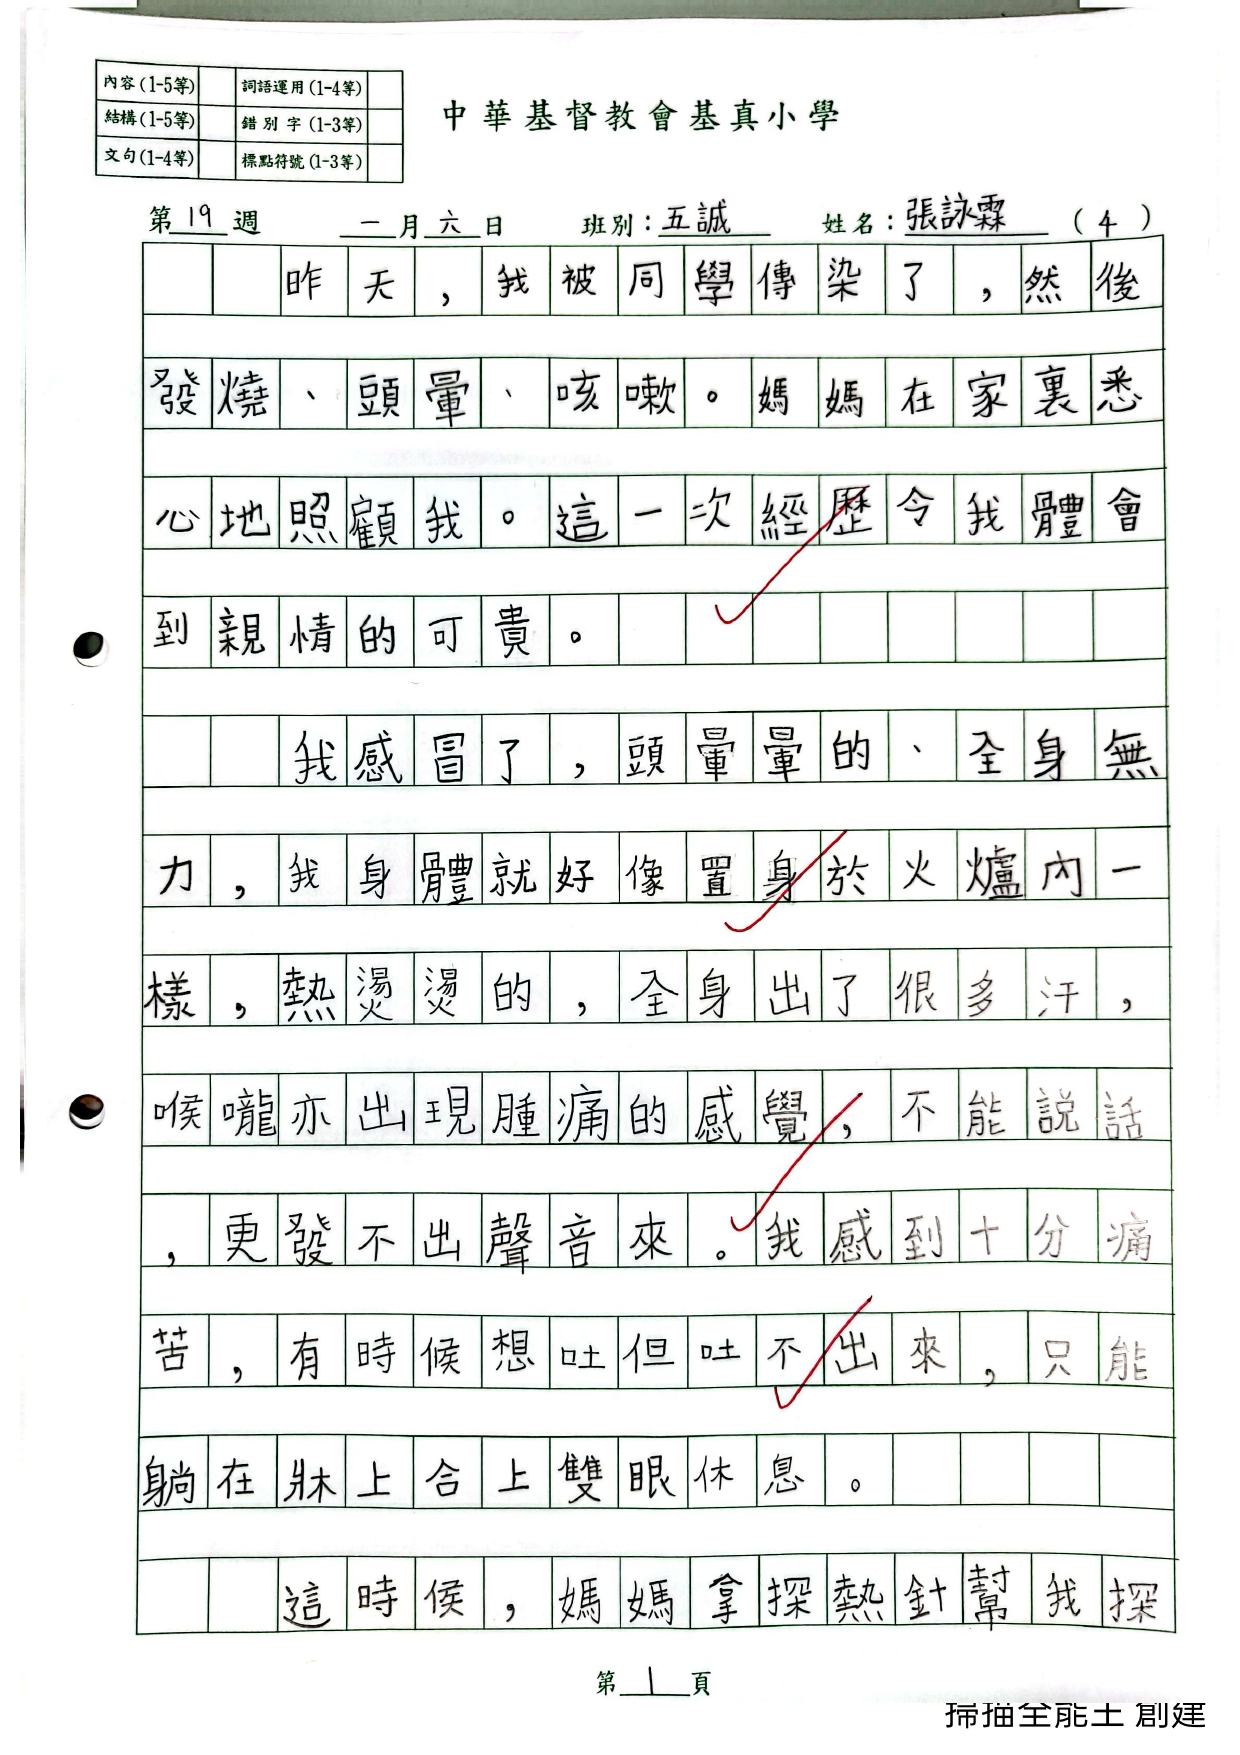 內容(1-5等) 詞語運用(1-4等)
結構(1-5等) 錯別字(1-3等)
文句(1-4等) 標點符號(1-3等)
中華基督教會基真小學
第19週 一月六日 班別：五誠 姓名：張詠霖（4）
昨天，我被同學傳染了，然後
發燒、頭暈、咳嗽。媽媽在家裏悉
心地照顧我。這一次經歷令我體會
到親情的可貴。
我感冒了，頭暈暈的、全身無
力，我身體就好像置身於火爐內一
樣，熱燙燙的，全身出了很多汗，
喉嚨亦出現腫痛的感覺，不能說話
，更發不出聲音來。我感到十分痛
苦，有時候想吐但吐不出來，只能
躺在牀上合上雙眼休息。
這時侯，媽媽拿探熱針幫我探
第1頁
掃描全能王 創建